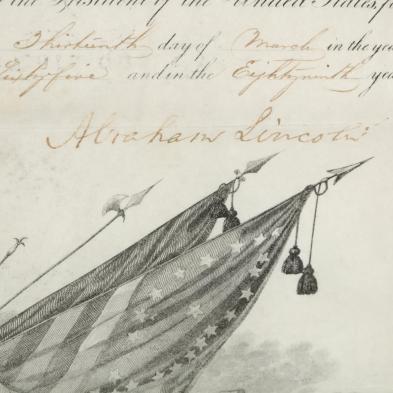 the President of the United States,
Thirteenth day of March in the yea
Sixty five and in the Eighty ninth yea
Abraham Lincoln